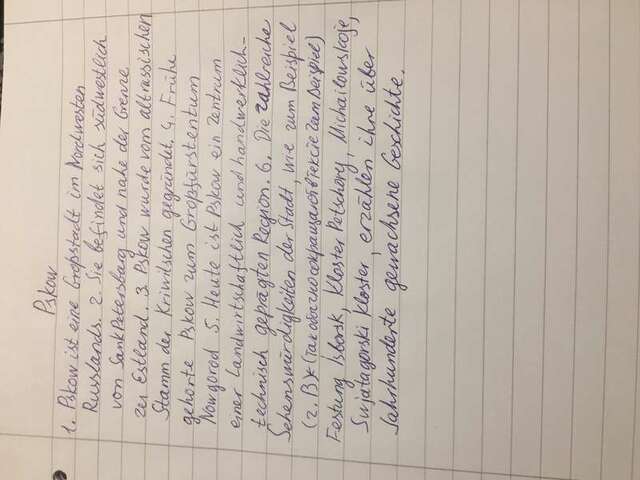 Pskow
1. Pskow ist eine Großstadt im Nordwesten
Russlands. 2. Sie befindet sich südwestlich
von SankPetersburg und nahe der Grenze
zu Estland. 3. Pskow wurde vom altrussischen
Stamm der Kriwitschen gegründet. 4. Frühe
gehorte Pskow zum Großfürstentum
Nowgorod 5. Heute ist Pskow ein Zentrum
einer Landwirtschaftlich und handwerklich-
technisch geprägten Region. 6. Die zahlreiche
Sehenswürdigkeiten der Stadt, wie zum Beispiel
(z. B)* (так обычно сокращают в тексте zum Beispiel)
Festung Isborsk, Kloster Petschory, Michailowskoje,
Swjatagorski Kloster, erzählen ihre über
Jahrhunderte gewachsene Geschichte.